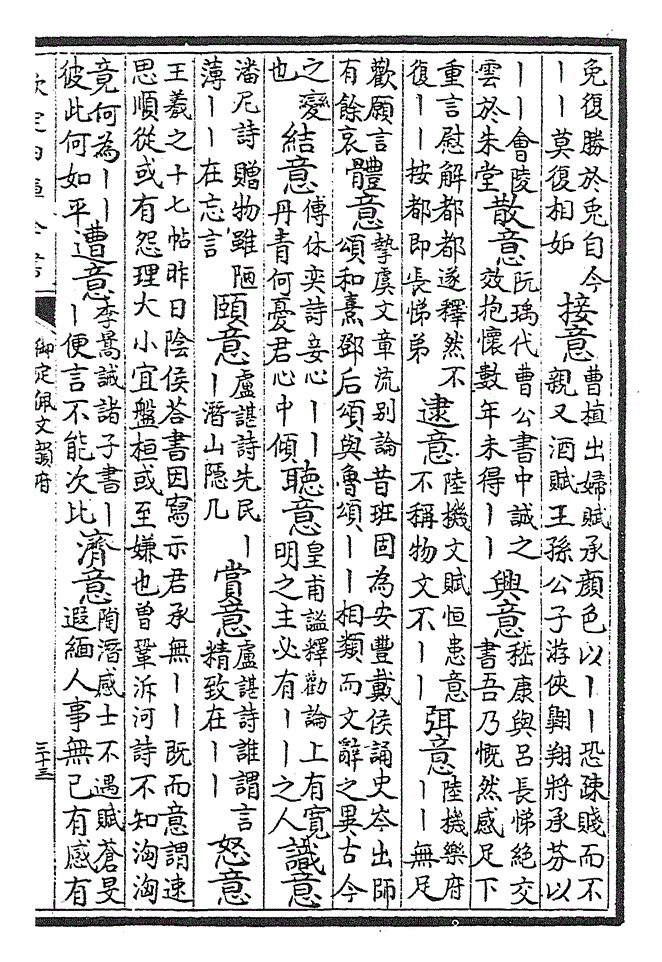 免復勝於兎自今
｜｜莫復相如
接意
曹植出婦賦承顏色以｜｜恐疎賤而不
親又酒賦王孫公子游俠翺翔將承芬以
｜｜會陵
雲於朱堂
散意
阮瑀代曹公書中誠之
效抱懷數年未得｜｜
興意
嵇康與呂長悌絶交
書吾乃慨然感足下
重言慰解都都遂釋然不
復｜｜按都即長悌弟
逮意
陸機文賦恒患意
不稱物文不｜｜
弭意
陸機樂府
｜｜無足
歡願言
有餘哀
體意
摯虞文章流别論昔班固為安豐戴侯誦史岑出師
頌和熹鄧后頌與魯頌｜｜相類而文辭之異古今
之變
也
結意
傅休奕詩妾心｜｜
丹青何憂君心中傾
聽意
皇甫謐釋勸論上有寛
明之主必有｜｜之人
識意
潘尼詩贈物雖陋
薄｜｜在忘言
頤意
盧諶詩先民｜
｜潛山隠几
賞意
盧諶詩誰謂言
精致在｜｜
怒意
王羲之十七帖昨日陰侯荅書因寫示君承無｜｜既而意謂速
思順從或有怨理大小宜盤桓或至嫌也曾鞏泝河詩不知洶洶
竟何為｜｜
彼此何如平
遭意
李暠誡諸子書｜
｜便言不能次比
濟意
陶潛感士不遇賦蒼旻
遐緬人事無已有感有
欽定四庫全書
御定佩文韻府
三十三